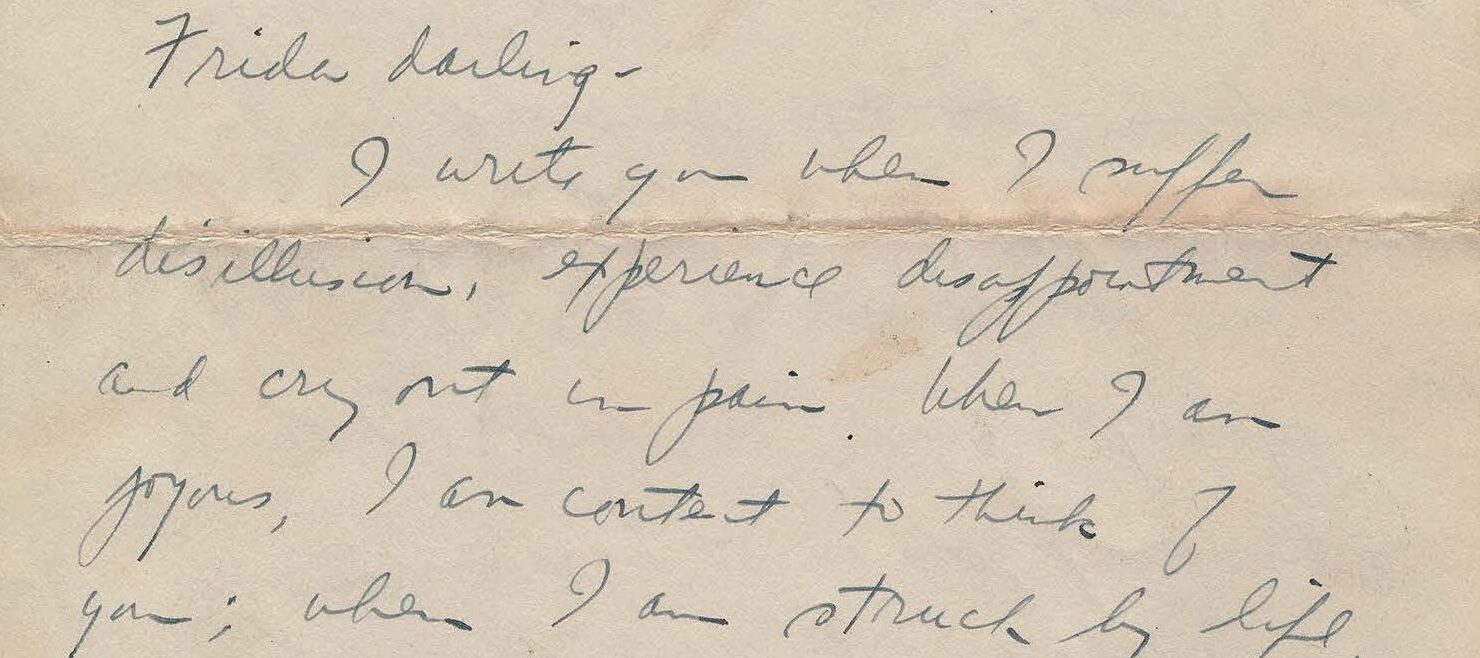 Frida darling-
I write you when I suffer
disillusion, experience disappointment
and cry out in pain. When I am
joyous, I am content to think of
you; when I am struck by life,